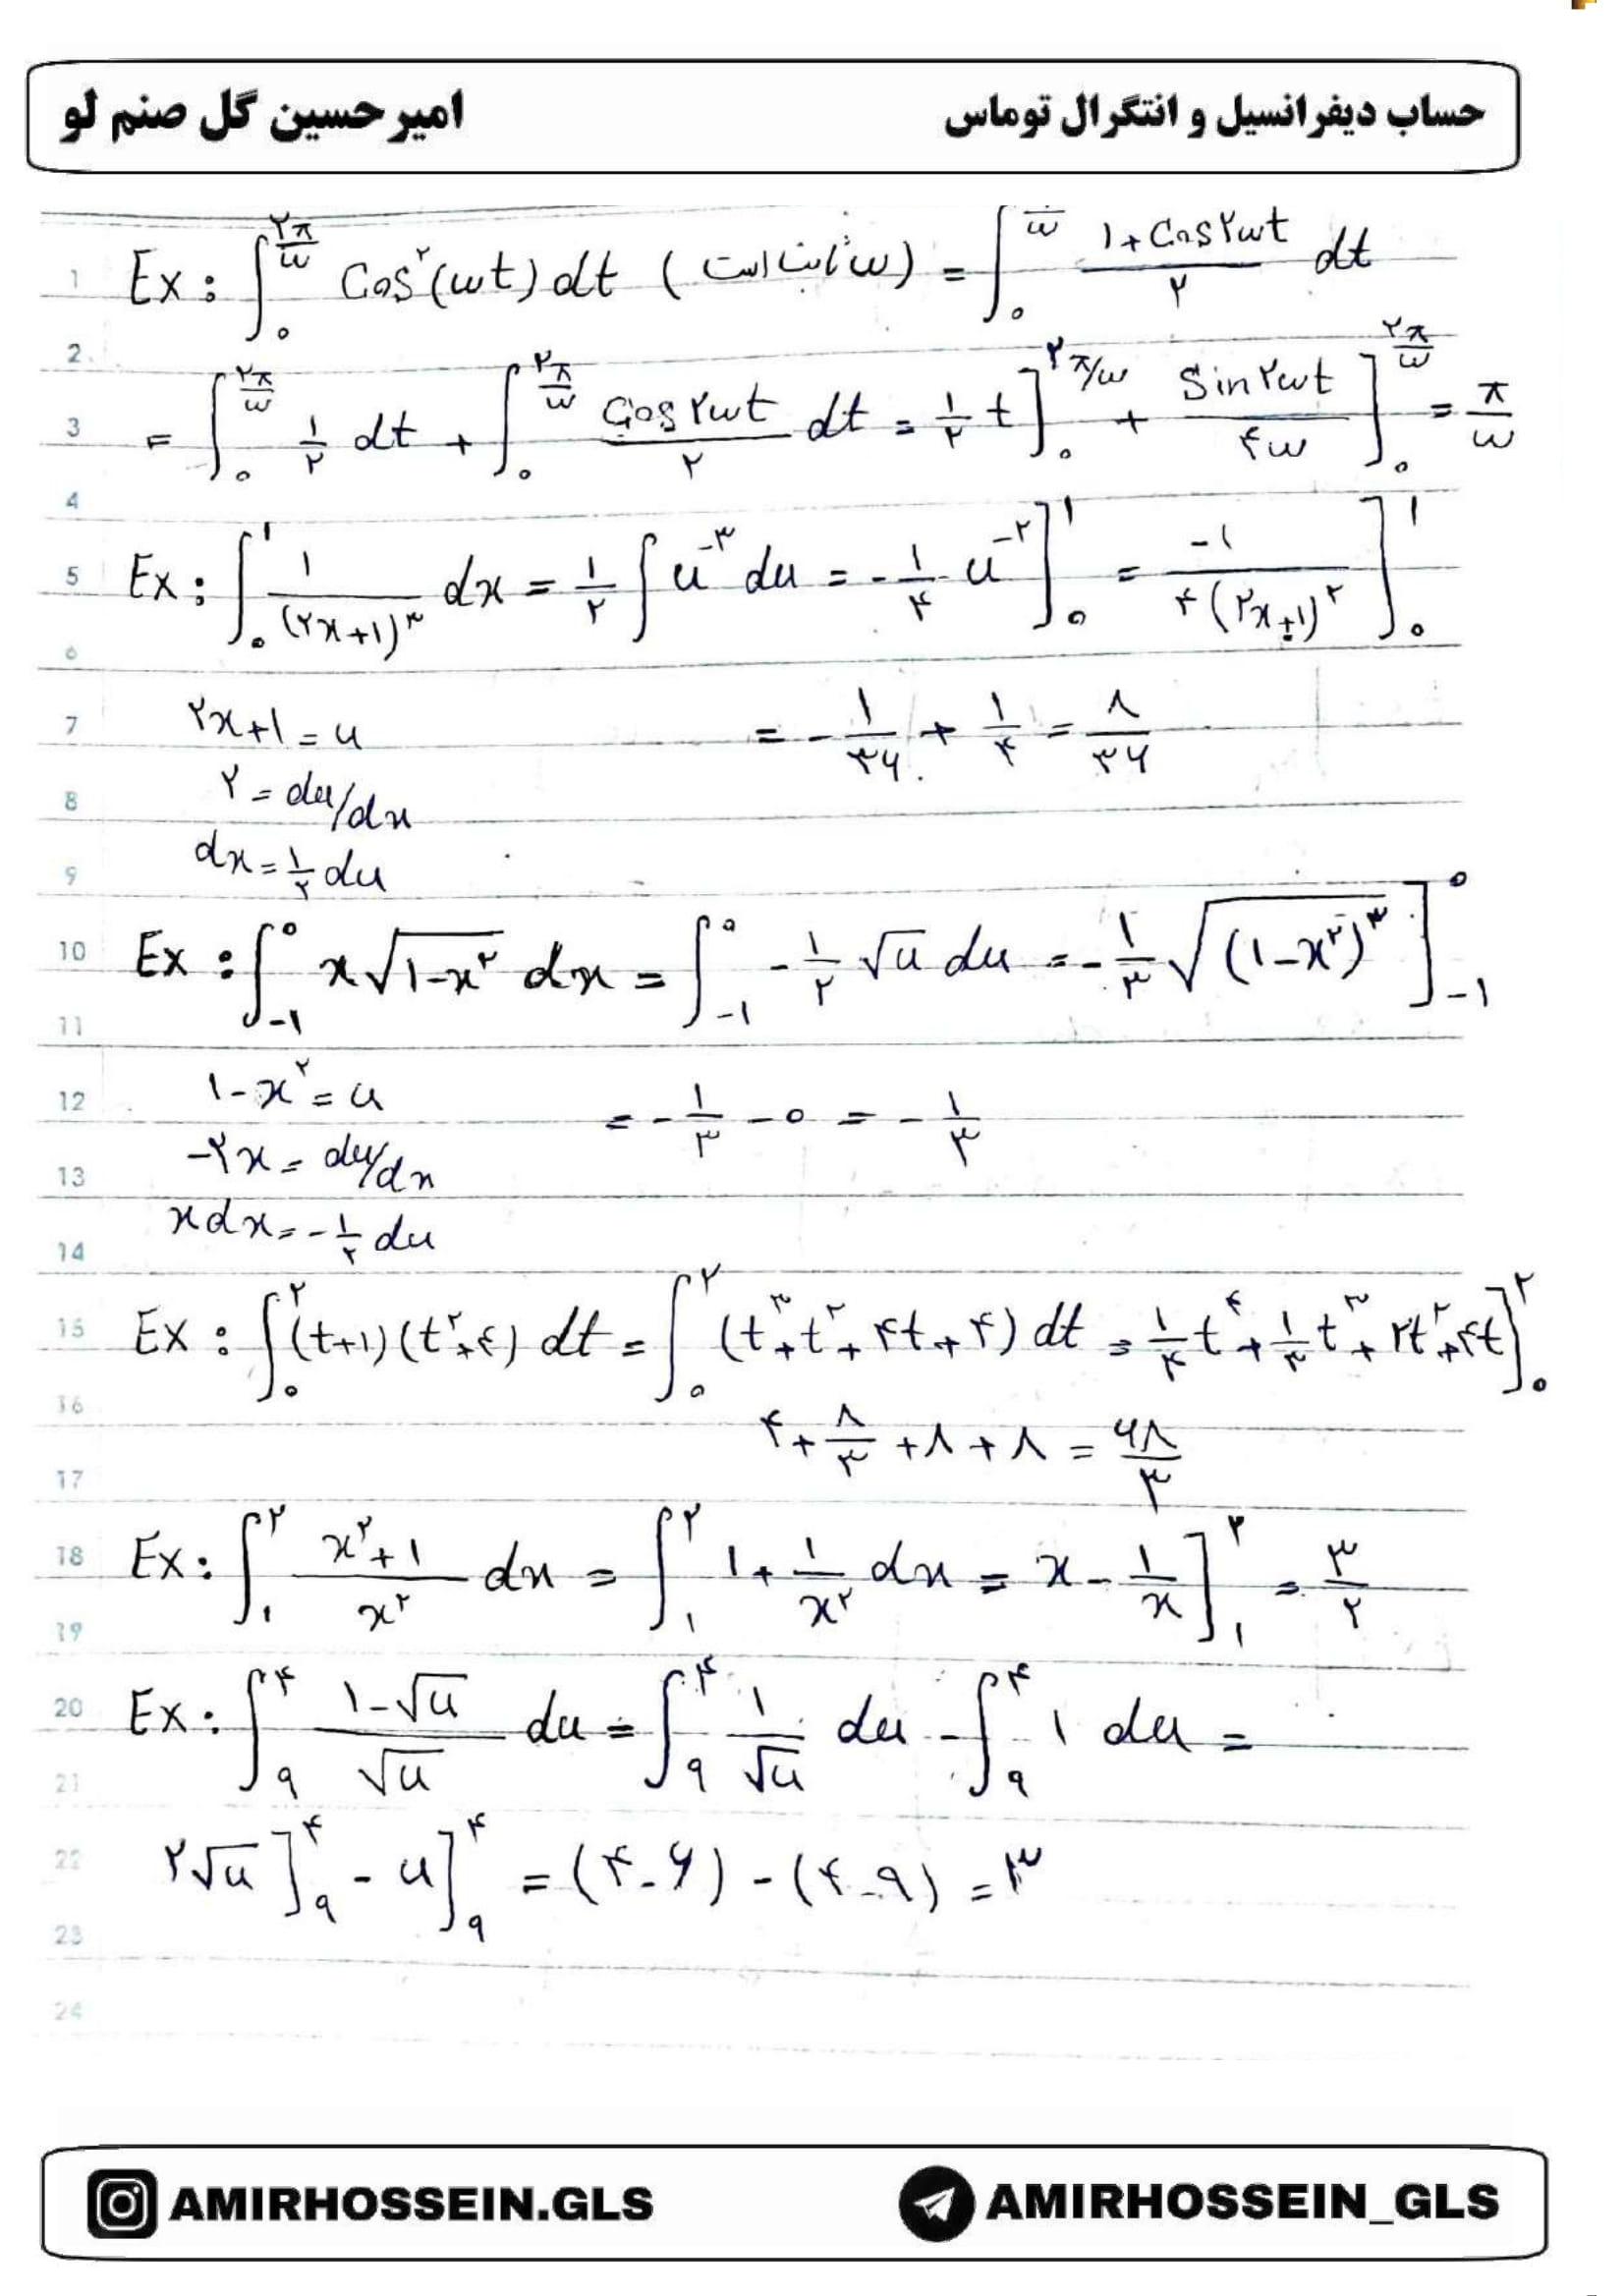 حساب دیفرانسیل و انتگرال توماس امیرحسین گل صنم لو
1 Ex: ∫₀^{۲π/ω} Cos^۲(ωt) dt (ω ثابت است) = ∫₀^{/ω} (۱+Cos۲ωt)/۲ dt
2
3 = ∫₀^{۲π/ω} ۱/۲ dt + ∫₀^{۲π/ω} (Cos۲ωt)/۲ dt = ۱/۲ t]₀^{۲π/ω} + (Sin۲ωt)/(۴ω)]₀^{۲π/ω} = π/ω
4
5 Ex: ∫₀^۱ ۱/(۲x+۱)^۳ dx = ۱/۲ ∫ u^{-۳} du = -۱/۴ u^{-۲}]₀^۱ = -۱/(۴(۲x+۱)^۲)]₀^۱
6
7 ۲x+۱ = u = -۱/۳۶ + ۱/۴ = ۸/۳۶
8 ۲ = du/dx
9 dx = ۱/۲ du
10 Ex: ∫_{-۱}^۰ x√(۱-x^۲) dx = ∫_{-۱}^۰ -۱/۲ √u du = -۱/۳ √((۱-x^۲)^۳)]_{-۱}^۰
11
12 ۱-x^۲ = u = -۱/۳ - ۰ = -۱/۳
13 -۲x = du/dx
14 xdx = -۱/۲ du
15 Ex: ∫₀^۲ (t+۱)(t^۲+۴) dt = ∫₀^۲ (t^۳+t^۲+۴t+۴) dt = ۱/۴ t^۴ + ۱/۳ t^۳ + ۲t^۲ + ۴t]₀^۲
16 ۴ + ۸/۳ + ۸ + ۸ = ۶۸/۳
17
18 Ex: ∫₁^۲ (x^۲+۱)/x^۲ dx = ∫₁^۲ ۱ + ۱/x^۲ dx = x - ۱/x]₁^۲ = ۳/۲
19
20 Ex: ∫₉^۴ (۱-√u)/√u du = ∫₉^۴ ۱/√u du - ∫₉^۴ ۱ du =
21
22 ۲√u]₉^۴ - u]₉^۴ = (۴-۶) - (۴-۹) = ۳
23
24
AMIRHOSSEIN.GLS AMIRHOSSEIN_GLS